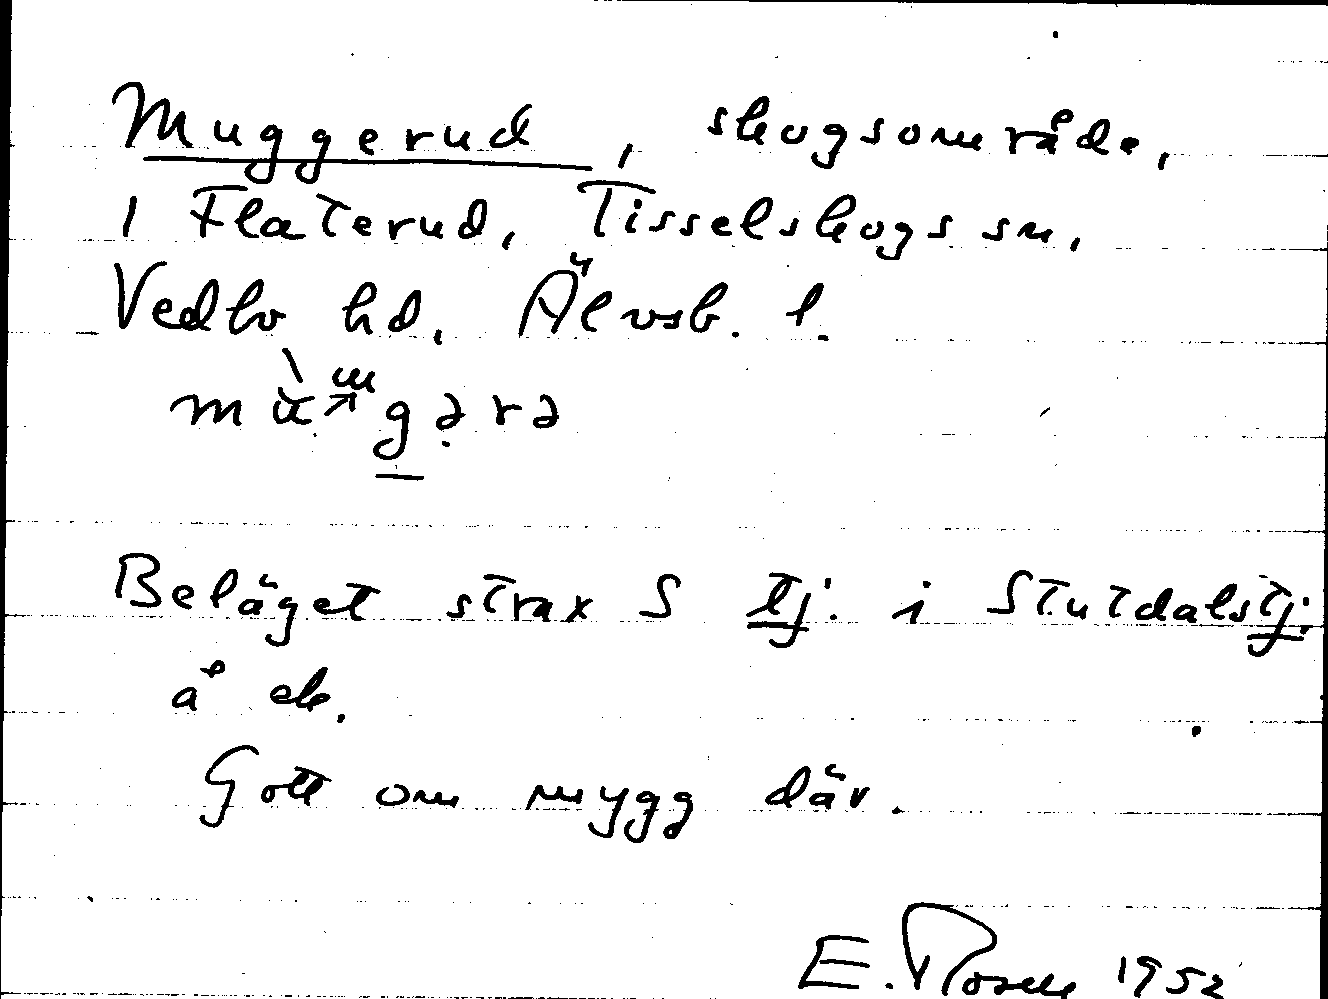 Muggerud, skogsområde,
i Flaterud, Tisselskogs sn,
Vedbo hd, Älvsb. l.
Beläget strax S tj. i Stutdalstj.
å ek.
Gott om mygg där.
E. Rosell 1952